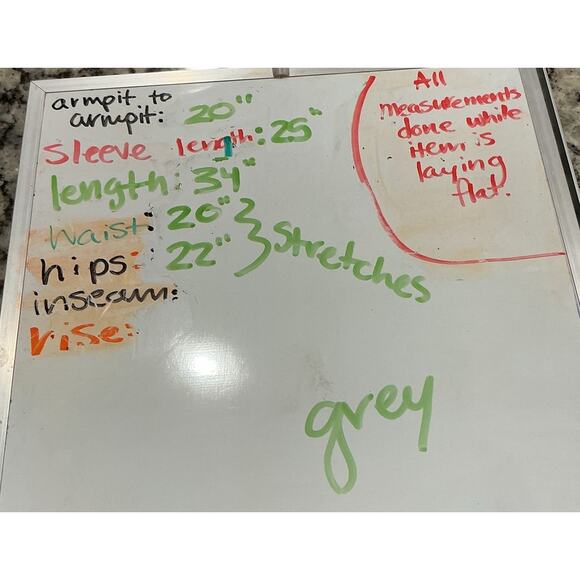 armpit to
armpit: 20"
Sleeve length: 25"
length: 34"
Waist: 20"
hips: 22"
Stretches
inseam:
rise:
grey
All
measurements
done while
item is
laying
flat.